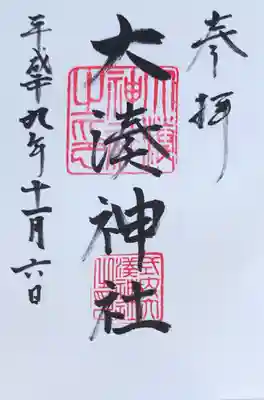 奉拝
大湊神社
平成廿九年十一月六日
大湊神社之印